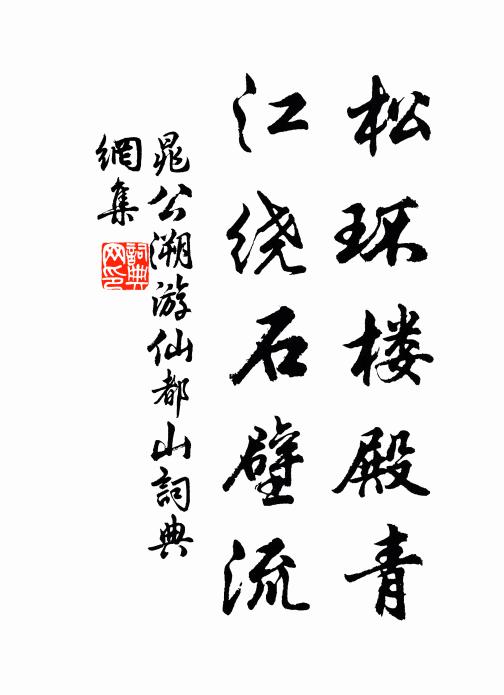 松环楼殿青
江绕石壁流
晁公溯游仙都山詞典
網集
詞典
网印